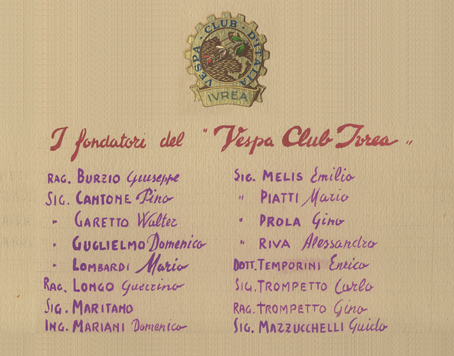 VESPA · CLUB · D'ITALIA
IVREA
I fondatori del "Vespa Club Ivrea"
RAG. BURZIO Giuseppe
SIG. CANTONE Pino
" GARETTO Walter
" GUGLIELMO Domenico
" LOMBARDI Mario
RAG. LONGO Guerrino
SIG. MARITANO
ING. MARIANI Domenico
SIG. MELIS Emilio
" PIATTI Mario
" PROLA Gino
" RIVA Alessandro
DOTT. TEMPORINI Enrico
SIG. TROMPETTO Carlo
RAG. TROMPETTO Gino
SIG. MAZZUCCHELLI Guido